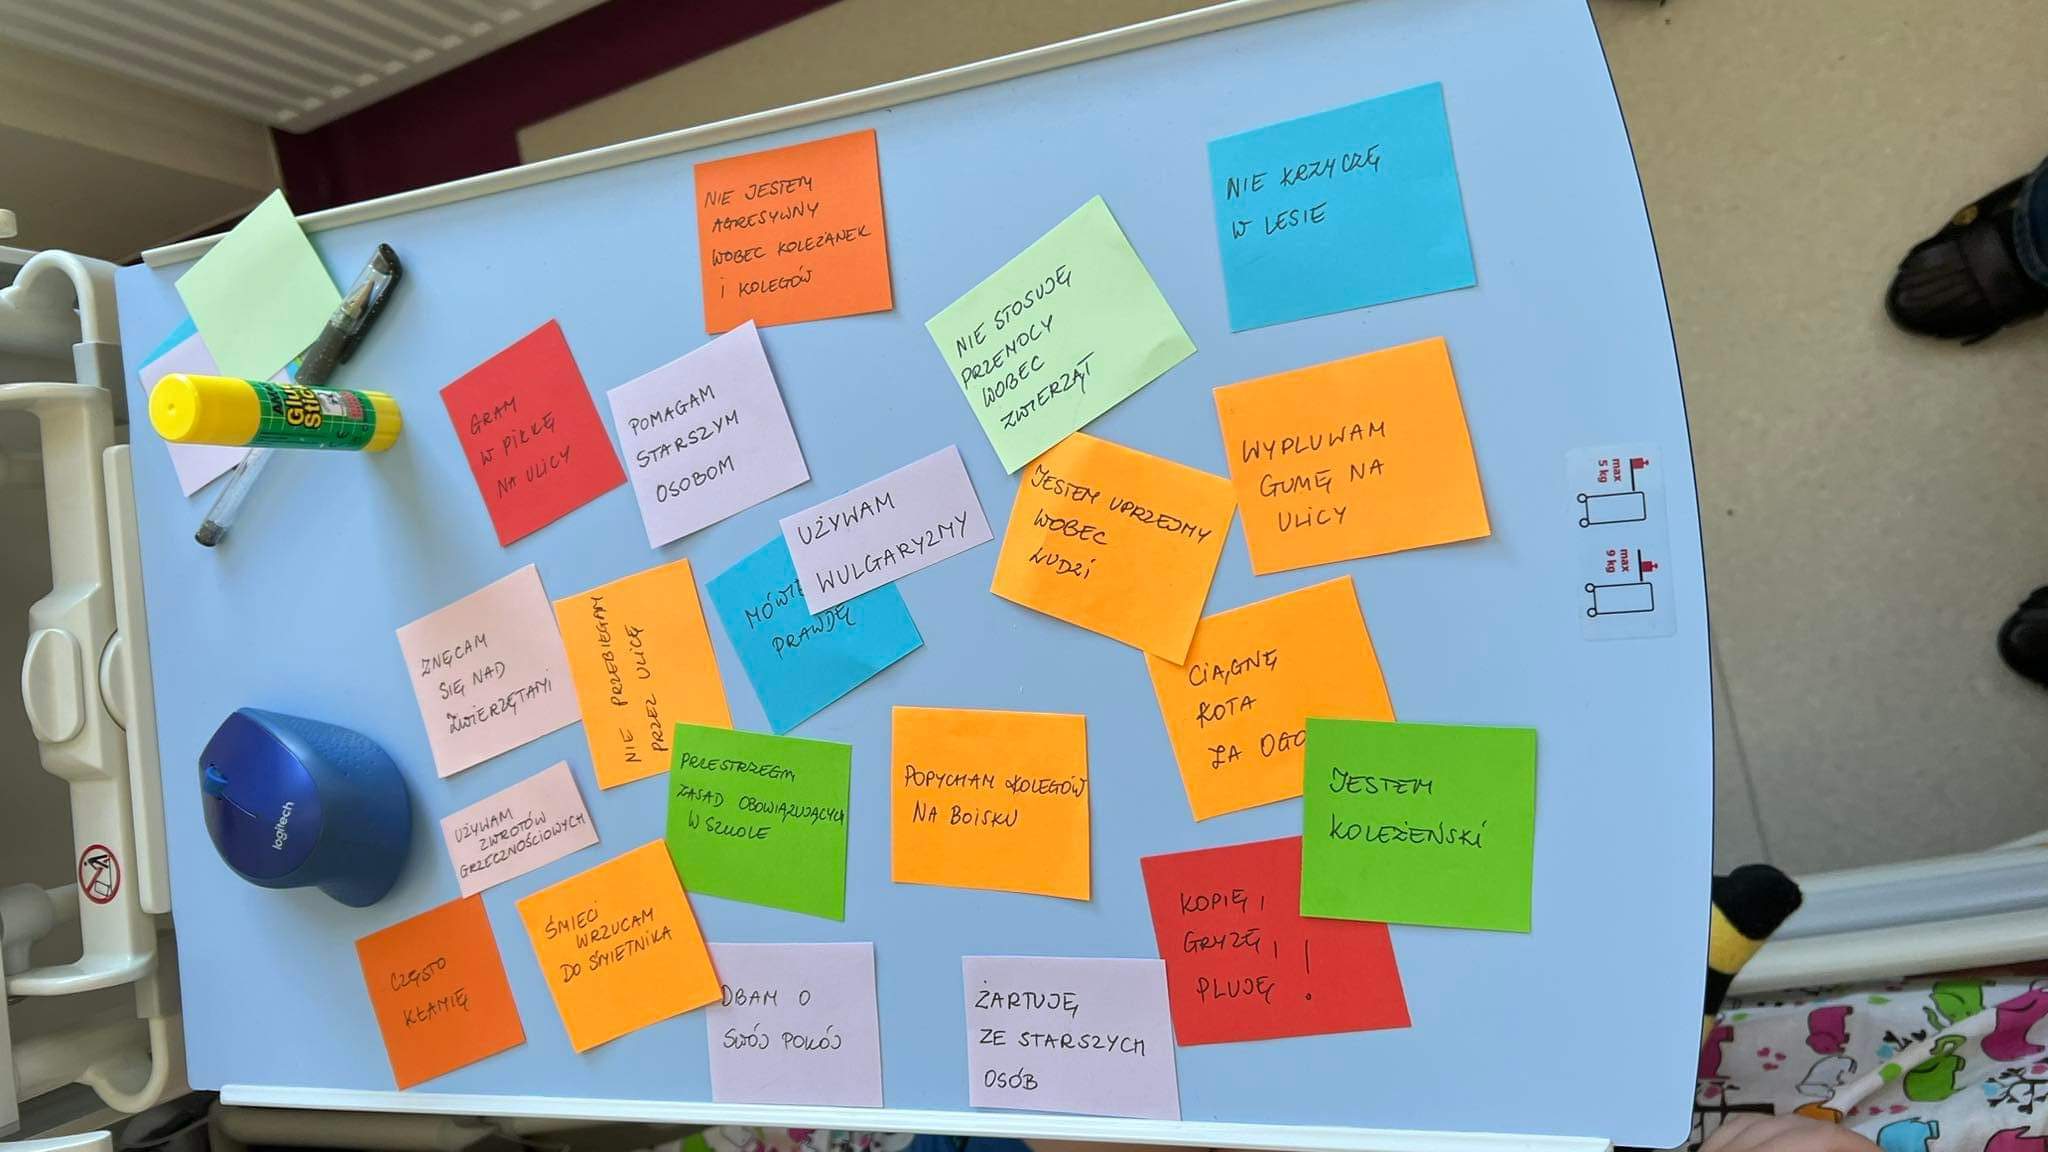 NIE JESTEM
AGRESYWNY
WOBEC KOLEŻANEK
I KOLEGÓW
NIE KRZYCZĘ
W LESIE
NIE STOSUJĘ
PRZEMOCY
WOBEC
ZWIERZĄT
GRAM
W PIŁKĘ
NA ULICY
POMAGAM
STARSZYM
OSOBOM
WYPLUWAM
GUMĘ NA
ULICY
UŻYWAM
WULGARYZMY
JESTEM UPRZEJMY
WOBEC
LUDZI
MÓWIĘ
PRAWDĘ
ZNĘCAM
SIĘ NAD
ZWIERZĘTAMI
NIE PRZEBIEGAM
PRZEZ ULICĘ
CIĄGNĘ
KOTA
ZA OGO
PRZESTRZEGM
ZASAD OBOWIĄZUJĄCYCH
W SZKOLE
POPYCHAM KOLEGÓW
NA BOISKU
JESTEM
KOLEŻEŃSKI
UŻYWAM
ZWROTÓW
GRZECZNOŚCIOWYCH
KOPIĘ,
GRYZĘ,
PLUJĘ !
ŚMIECI
WRZUCAM
DO ŚMIETNIKA
CZĘSTO
KŁAMIĘ
DBAM O
SWÓJ POKÓJ
ŻARTUJĘ
ZE STARSZYCH
OSÓB
Glue
Stic
logitech
max
5 kg
max
9 kg